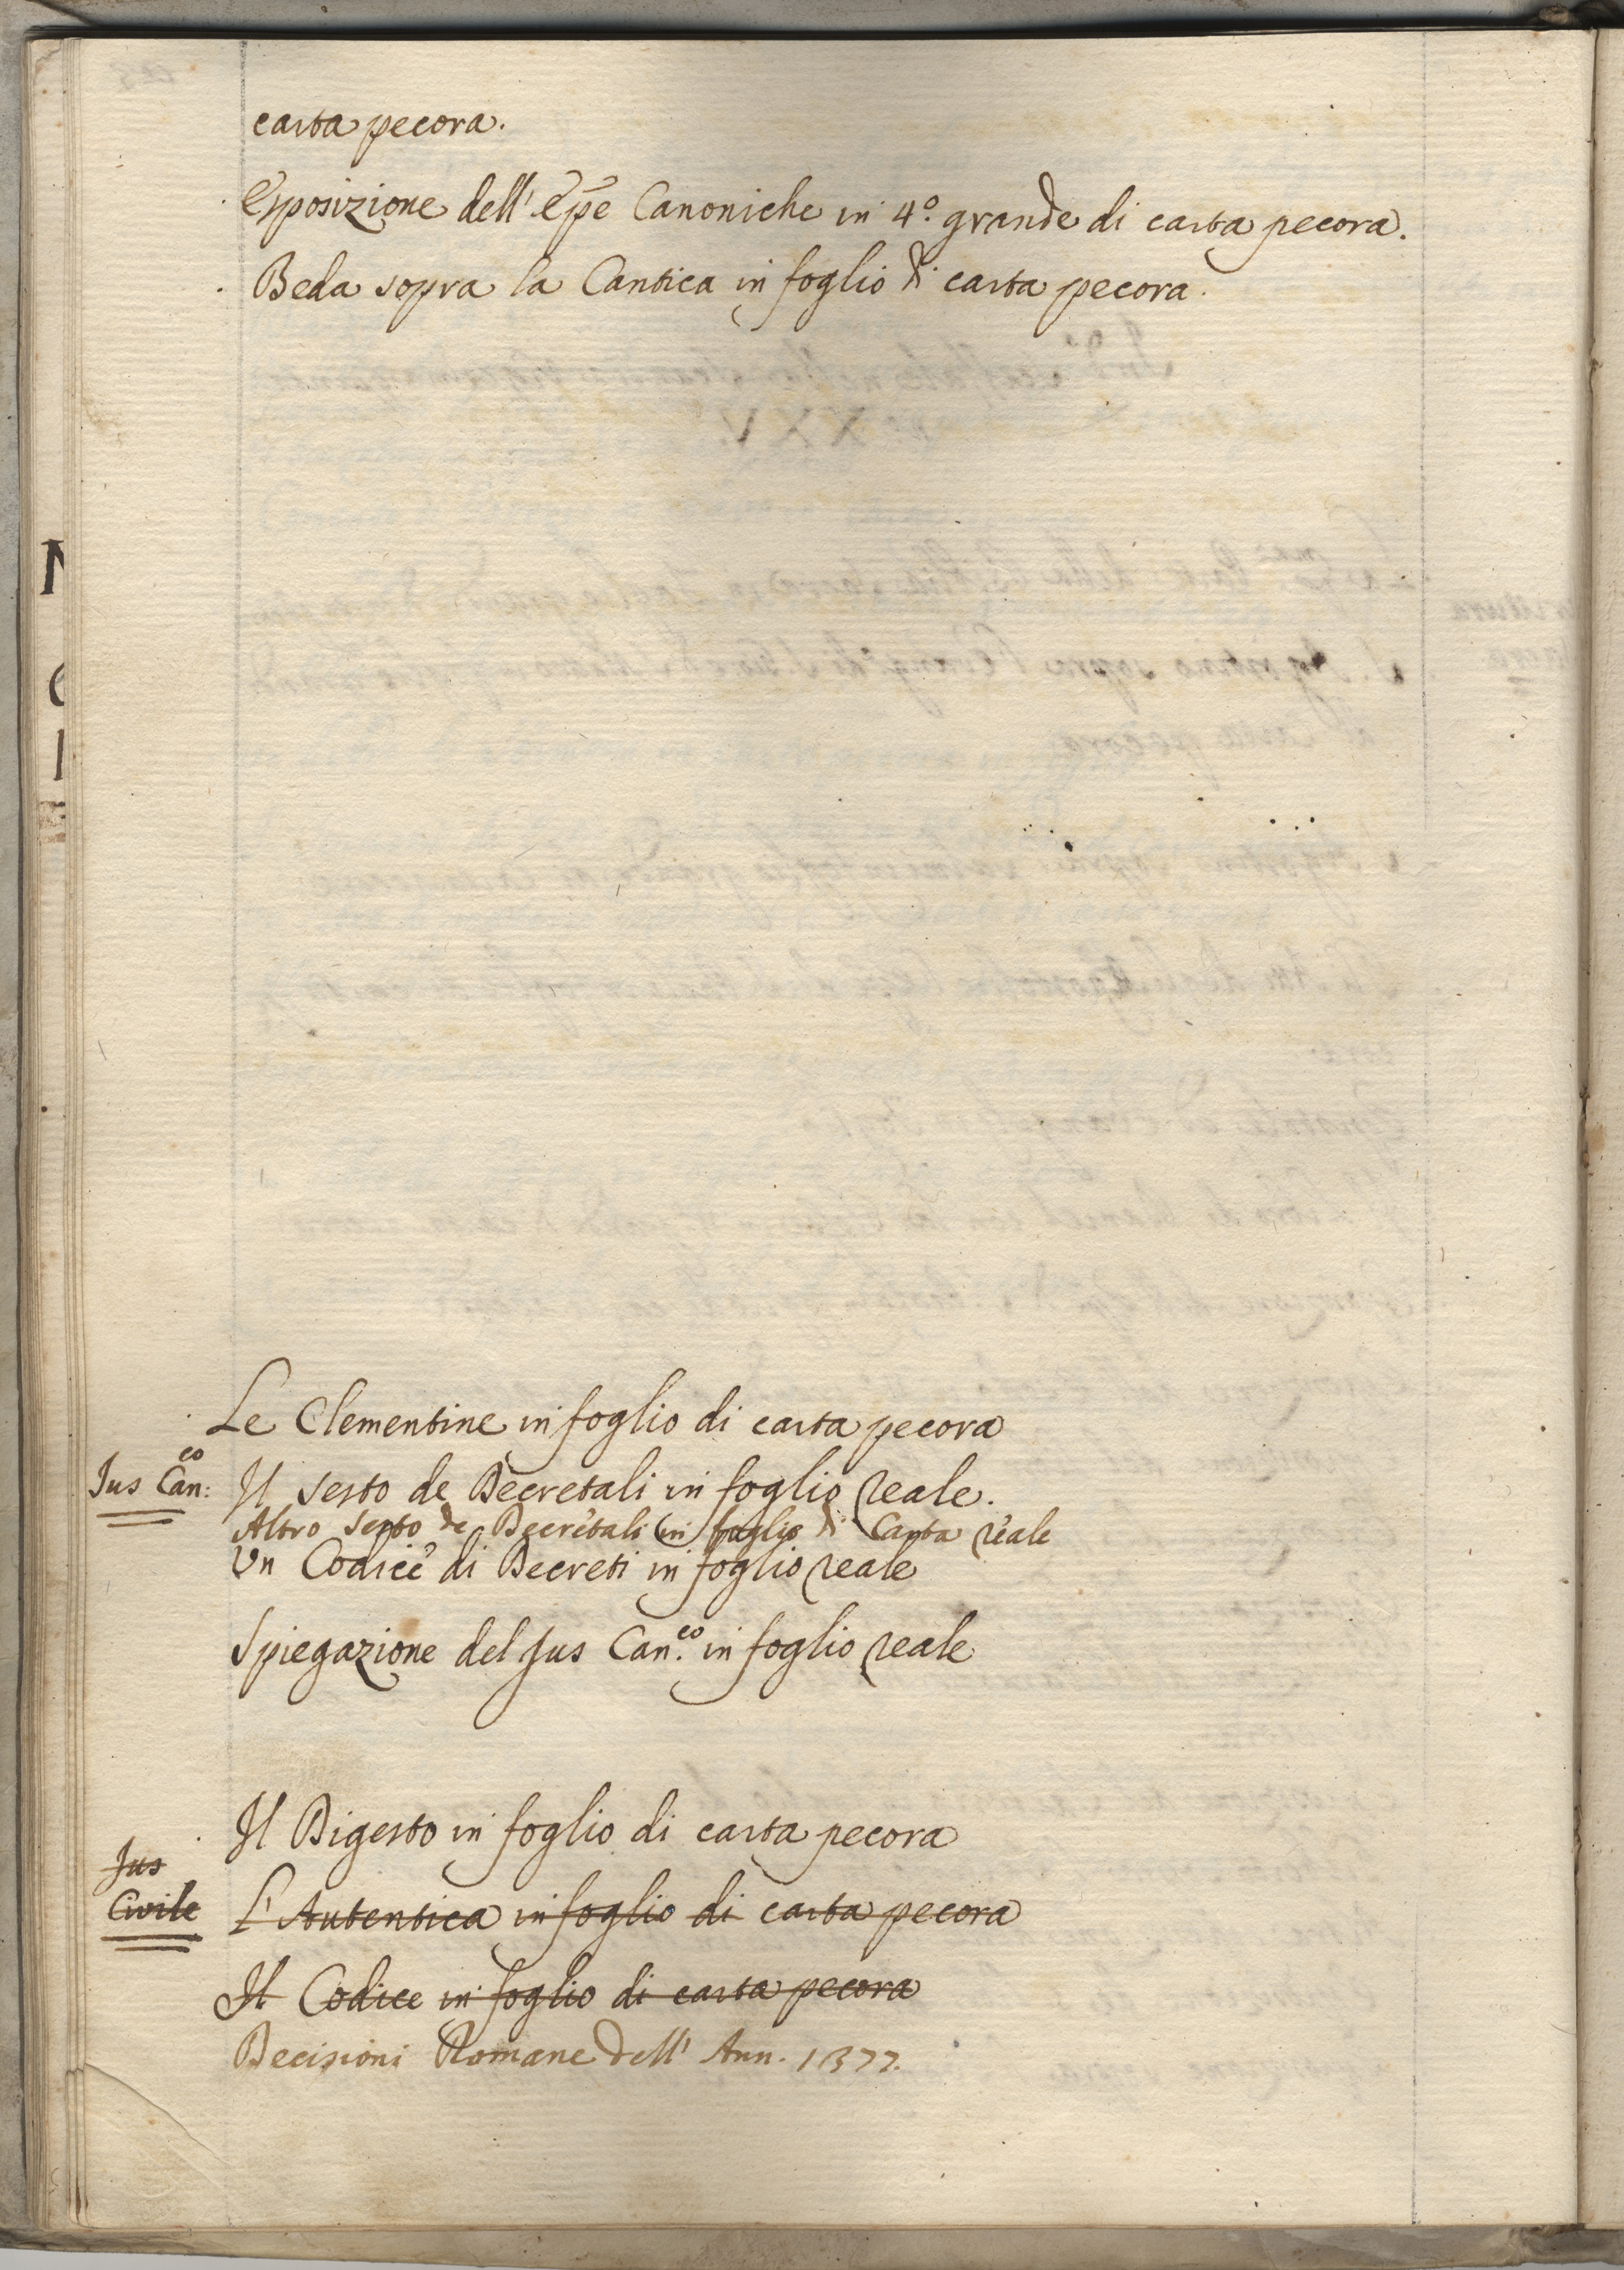 carta pecora.
Esposizione dell' Ep̃e Canoniche in 4.º grande di carta pecora.
Beda sopra la Cantica in foglio di carta pecora.
Le Clementine in foglio di carta pecora
Jus Can:co
Il sesto de Decretali in foglio reale.
Altro sesto de Decretali in foglio di Carta reale
Un Codice di Decreti in foglio reale
Spiegazione del Jus Can.co in foglio reale
Il Digesto in foglio di carta pecora
Jus
Civile
L'Autentica in foglio di carta pecora
Il Codice in foglio di carta pecora
Decisioni Romane dell' Ann. 1377.